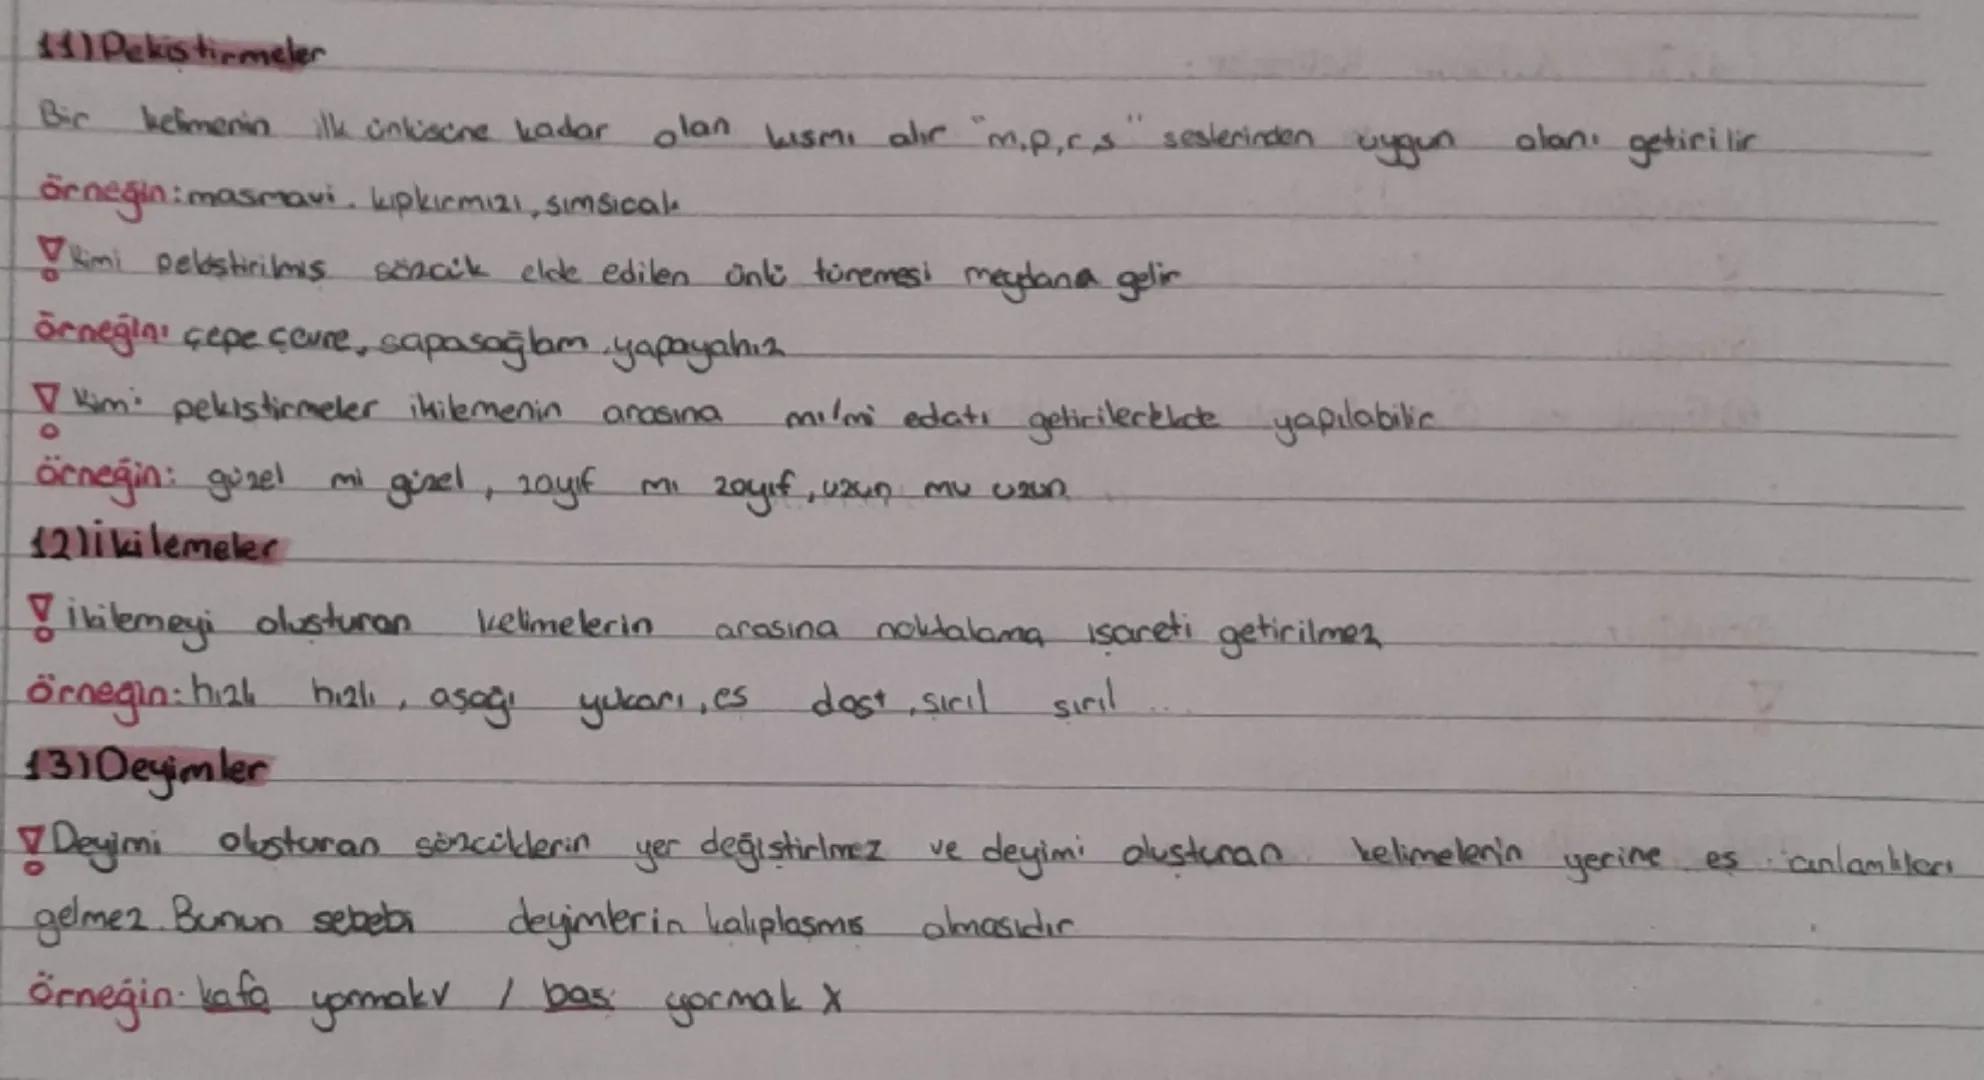 11) Pekiştirmeler
Bir kelimenin ilk ünlüsüne kadar olan kısmı alır "m,p,r,s" seslerinden uygun olanı getirilir
örneğin: masmavi, kıpkırmızı, sımsıcak
! Kimi pekiştirilmiş sözcük elde edilen ünlü türemesi meydana gelir
örneğin: çepe çevre, sapasağlam, yapayalnız
! Kimi pekiştirmeler ikilemenin arasına mı/mi edatı getirilerekde yapılabilir
örneğin: güzel mi güzel, zayıf mı zayıf, uzun mu uzun
12) İkilemeler
! İkilemeyi oluşturan kelimelerin arasına noktalama işareti getirilmez
örneğin: hızlı hızlı, aşağı yukarı, eş dost, şırıl şırıl ...
13) Deyimler
! Deyimi oluşturan sözcüklerin yer değiştirlmez ve deyimi oluşturan kelimelerin yerine eş anlamlıları
gelmez. Bunun sebebi deyimlerin kalıplaşmış olmasıdır
örneğin: kafa yormak v / baş yormak x